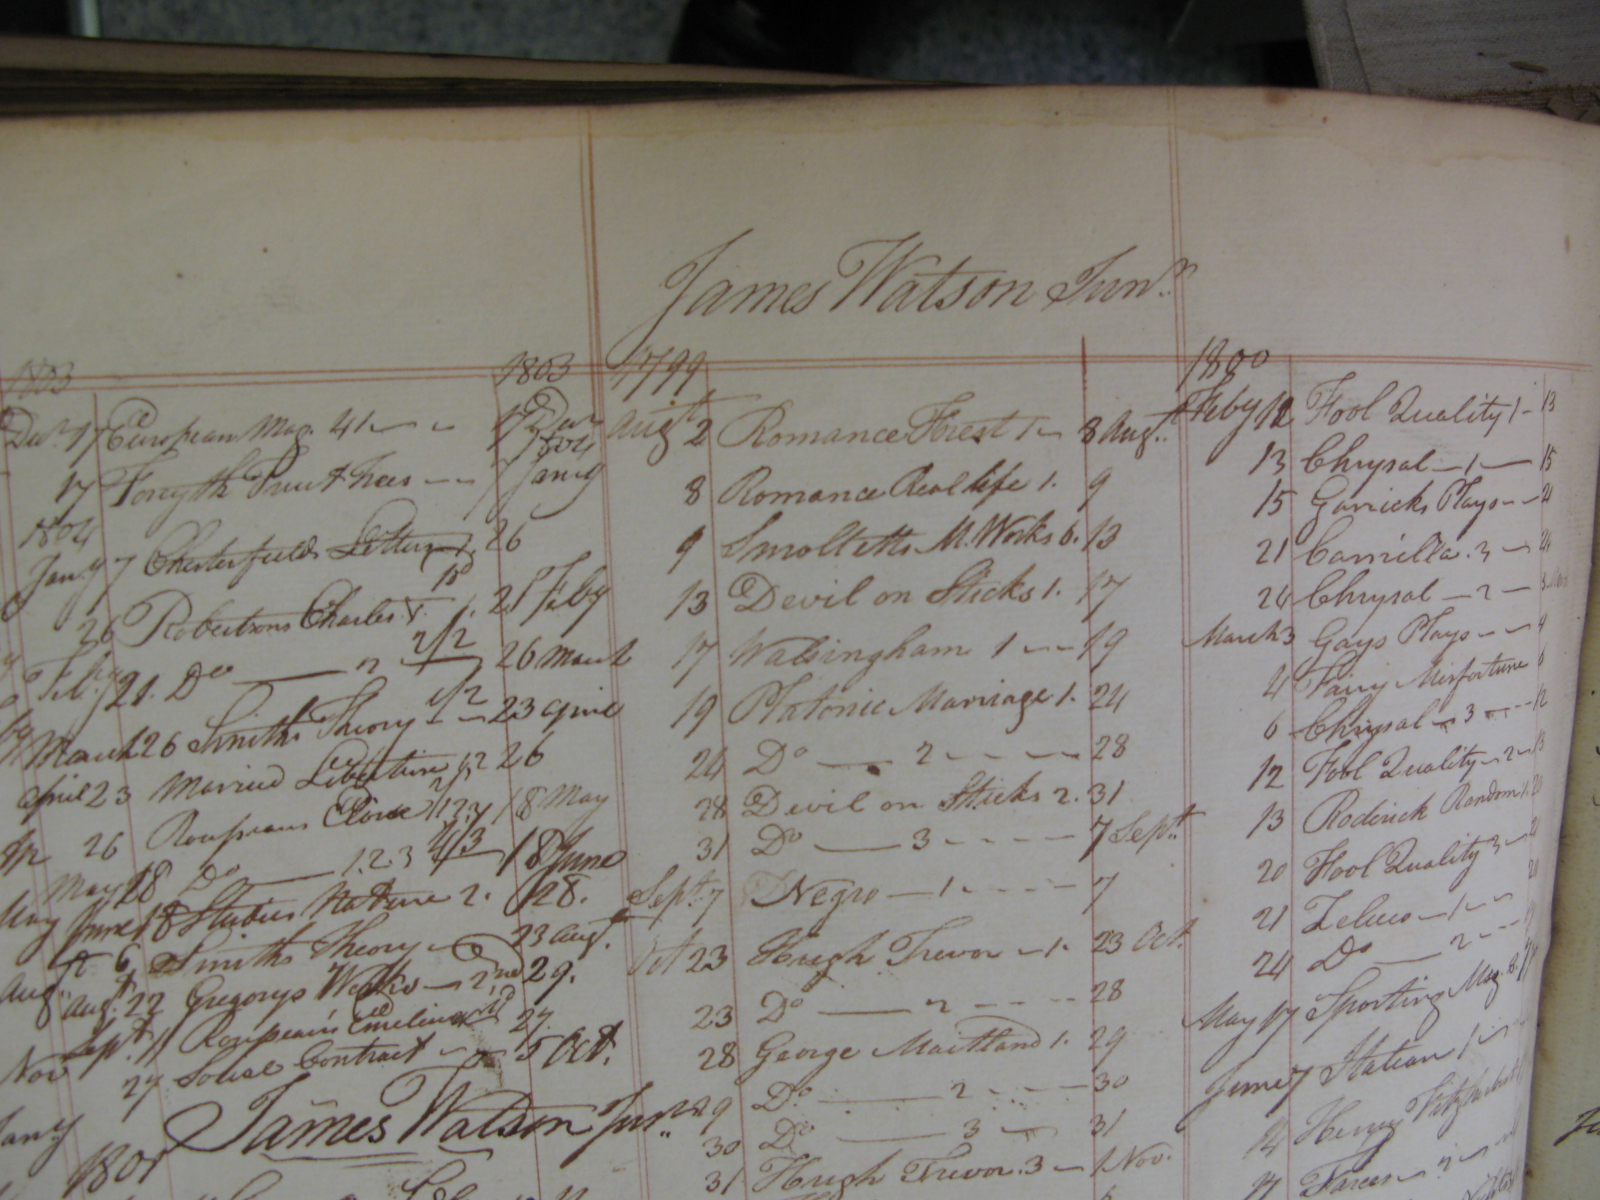 James Watson Junr.
1803 1803
Decr. 17 European Mag. 41 17 Decr
1804
17 Forsyth Fruit Trees 7 Jany
1804
Jany 7 Chesterfields Letters 1. 26
26 Robertsons Charles V. 1. 21 Feby
Feby 21. Do 2 26 March
March 26 Smiths Theory 23 april
april 23 Married Libertine 1,2 26
26 Rousseaus Eloise 1.2.3.4 18 May
May 18 Do 1.2.3 18 June
June 18 Studies Nature 2. 28.
6 Smiths Theory 23 augt.
augt. 22 Gregorys Works 2 29.
Sept. 11 Rousseau's Emelius 27
27 Social Contract 5 Oct.
James Watson Junr.
1801
1799
augt 2 Romance Forest 1 8 Augt.
8 Romance Real life 1. 9
9 Smolletts M. Works 6. 13
13 Devil on Sticks 1. 17
17 Walsingham 1 19
19 Platonic Marriage 1. 24
24 Do 2 28
28 Devil on Sticks 2. 31
31 Do 3 7 Sept.
Sept. 7 Negro 1 7
Oct 23 Hugh Trevor 1. 23 Oct.
23 Do 2 28
28 George Maitland 1. 29
29 Do 2 30
30 Do 3 31
31 Hugh Trevor. 3 1 Nov.
1800
Feby 12 Fool Quality 1 13
13 Chrysal 1 15
15 Garricks Plays 21
21 Camilla. 3 24
24 Chrysal 2 3
March 3 Gays Plays 4
4 Fairy Misfortune 6
6 Chrysal 3 12
12 Fool Quality 2 13
13 Roderick Random 1. 20
20 Fool Quality 3 21
21 Zeluco 1
24 Do 2
May 17 Sporting Mag.
June 7 Italian 1
14 Henry Fitzherbert
17 Farces